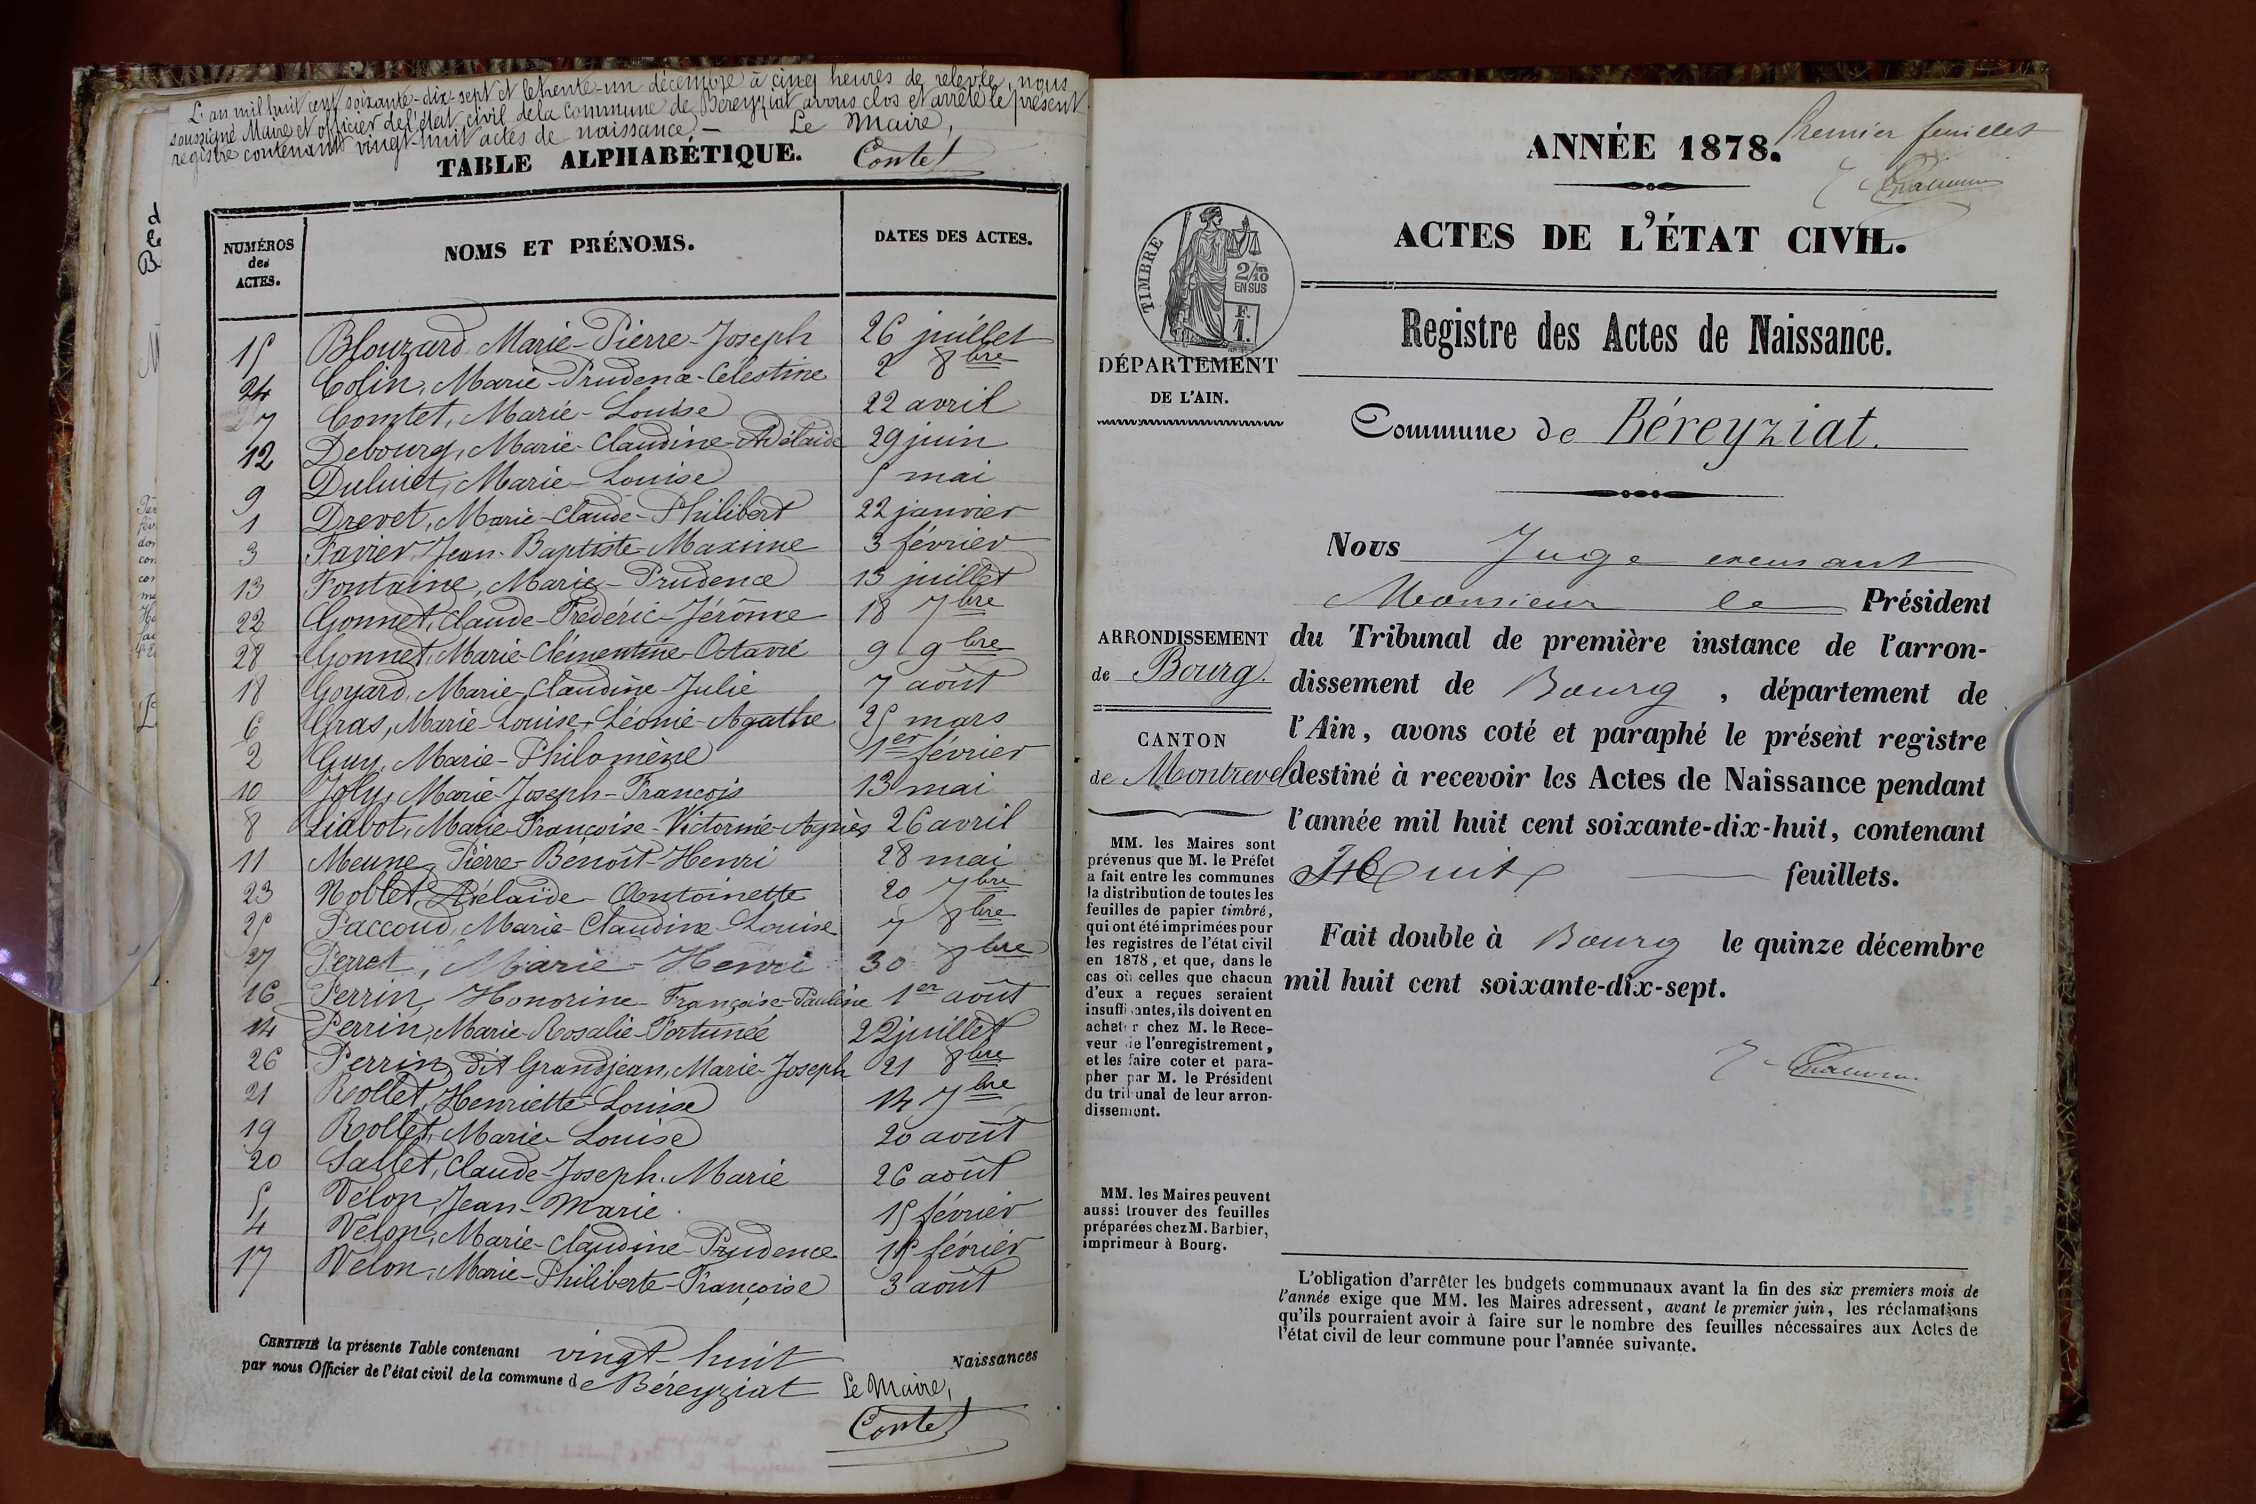 L'an mil huit cent soixante-dix-sept et le trente-un décembre à cinq heures de relevée, nous
soussigné Maire et officier de l'état civil de la commune de Béreyziat avons clos et arrêté le présent
registre contenant vingt-huit actes de naissance. — Le Maire,
Contet
TABLE ALPHABÉTIQUE.
NUMÉROS des ACTES. NOMS ET PRÉNOMS. DATES DES ACTES.
15 Blouzard Marie-Pierre-Joseph 26 juillet
24 Colin, Marie-Prudence-Célestine 2 8bre
7 Comtet, Marie-Louise 22 avril
12 Debourg, Marie-Claudine-Adélaïde 29 juin
9 Marie-Louise 5 mai
1 Drevet, Marie-Claude-Philibert 22 janvier
3 Favier, Jean-Baptiste-Maxime 3 février
13 Fontaine, Marie-Prudence 13 juillet
22 Gonnet, Claude-Frédéric-Jérôme 18 7bre
28 Gonnet, Marie-Clémentine-Octavie 9 9bre
18 Goyard, Marie-Claudine-Julie 7 août
6 Gras, Marie-Louise-Léonie-Agathe 25 mars
2 Guy, Marie-Philomène 1er février
10 Joly, Marie-Joseph-François 13 mai
8 Liabot, Marie-Françoise-Victorine-Agnès 26 avril
11 Meune, Pierre-Benoît-Henri 28 mai
23 Noblet, Adélaïde-Antoinette 20 7bre
25 Paccoud, Marie-Claudine-Louise 7 8bre
27 Perret, Marie-Henri 30 8bre
16 Perrin, Honorine-Françoise-Pauline 1er août
14 Perrin, Marie-Rosalie-Fortunée 22 juillet
26 Perrin dit Grandjean, Marie-Joseph 21 8bre
21 Rollet, Henriette-Louise 14 7bre
19 Rollet, Marie-Louise 20 août
20 Sallet, Claude-Joseph-Marie 26 août
5 Vélon, Jean-Marie 15 février
4 Vélon, Marie-Claudine-Prudence février
17 Vélon, Marie-Philiberte-Françoise 3 août
CERTIFIÉ la présente Table contenant vingt-huit Naissances
par nous Officier de l'état civil de la commune de Béreyziat Le Maire,
Contet
Premier feuillet
ANNÉE 1878.
ACTES DE L'ÉTAT CIVIL.
TIMBRE
2/10 EN SUS
F. 1.
Registre des Actes de Naissance.
DÉPARTEMENT
DE L'AIN.
Commune de Béreyziat.
ARRONDISSEMENT
de Bourg.
CANTON
de Montrevel
MM. les Maires sont
prévenus que M. le Préfet
a fait entre les communes
la distribution de toutes les
feuilles de papier timbré,
qui ont été imprimées pour
les registres de l'état civil
en 1878, et que, dans le
cas où celles que chacun
d'eux a reçues seraient
insuffisantes, ils doivent en
acheter chez M. le Rece-
veur de l'enregistrement,
et les faire coter et para-
pher par M. le Président
du tribunal de leur arron-
dissement.
MM. les Maires peuvent
aussi trouver des feuilles
préparées chez M. Barbier,
imprimeur à Bourg.
Nous Juge
Monsieur le Président
du Tribunal de première instance de l'arron-
dissement de Bourg, département de
l'Ain, avons coté et paraphé le présent registre
destiné à recevoir les Actes de Naissance pendant
l'année mil huit cent soixante-dix-huit, contenant
Huit feuillets.
Fait double à Bourg le quinze décembre
mil huit cent soixante-dix-sept.
L'obligation d'arrêter les budgets communaux avant la fin des six premiers mois de
l'année exige que MM. les Maires adressent, avant le premier juin, les réclamations
qu'ils pourraient avoir à faire sur le nombre des feuilles nécessaires aux Actes de
l'état civil de leur commune pour l'année suivante.